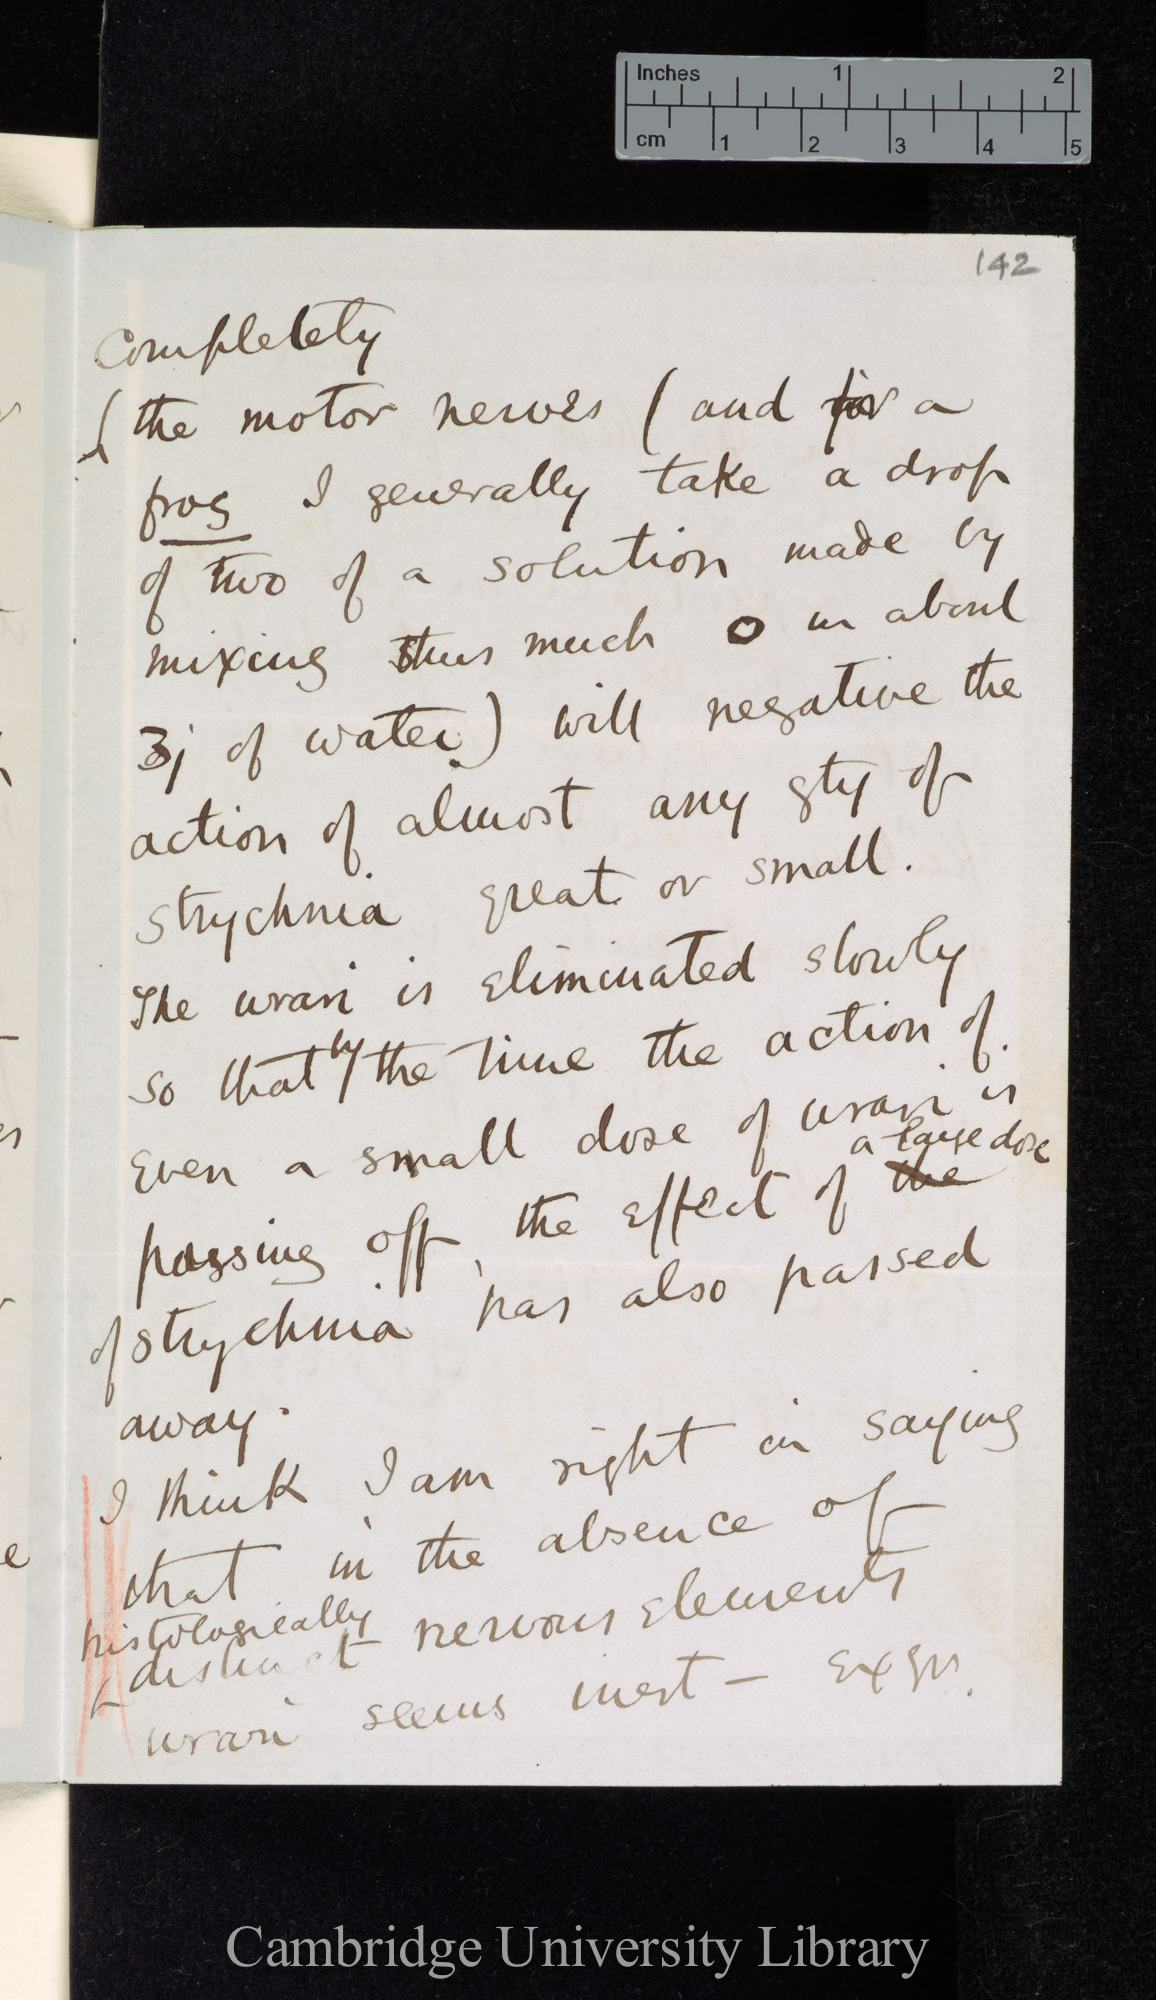 Inches 1 2
cm 1 2 3 4 5
142
completely
the motor nerves (and for a
frog I generally take a drop
of two of a solution made by
mixing thus much o in about
ʒj of water) will negative the
action of almost any qty of
strychnia great or small.
The urari is eliminated slowly
so that by the time the action of
even a small dose of urari is
a large dose
passing off, the effect of the
of strychnia has also passed
away.
I think I am right in saying
that in the absence of
histologically
distinct nervous elements
urari seems inert – exgr.
Cambridge University Library